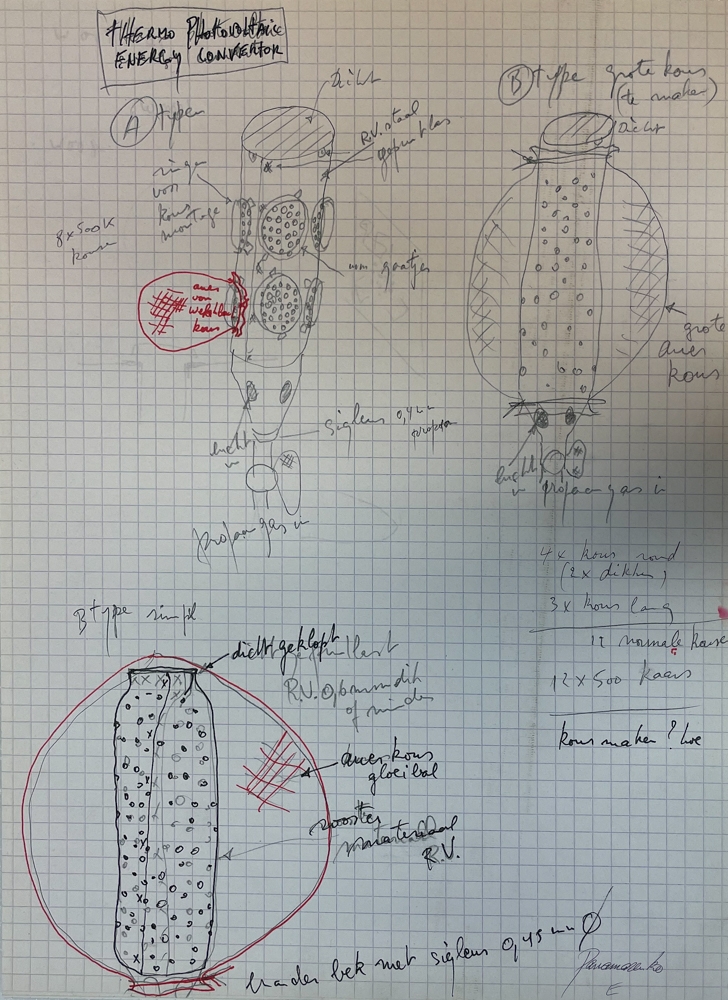 THERMO PHOTOVOLTAIC
ENERGY CONVERTOR
A type
Dicht
R.V. staal
gepuntlas
ringen
voor
kous
montage
8x500K
kousen
auer
kous
gaatjes
lucht
in
0,4 mm
propaan
propaan gas in
B type grote kous
(te maken)
Dicht
grote
auer
kous
lucht
in
propaan gas in
4x kous rond
(2x dikte)
3x kous lang
12 normale kouse
12 x 500 kaars
kous maken? hoe
B type simpel
dicht geklopt
R.V. 0,6 mm dik
of minder
auer kous
gloeibal
rooster
materiaal
R.V.
brander bek met 0,45 mm Ø
Panamarenko